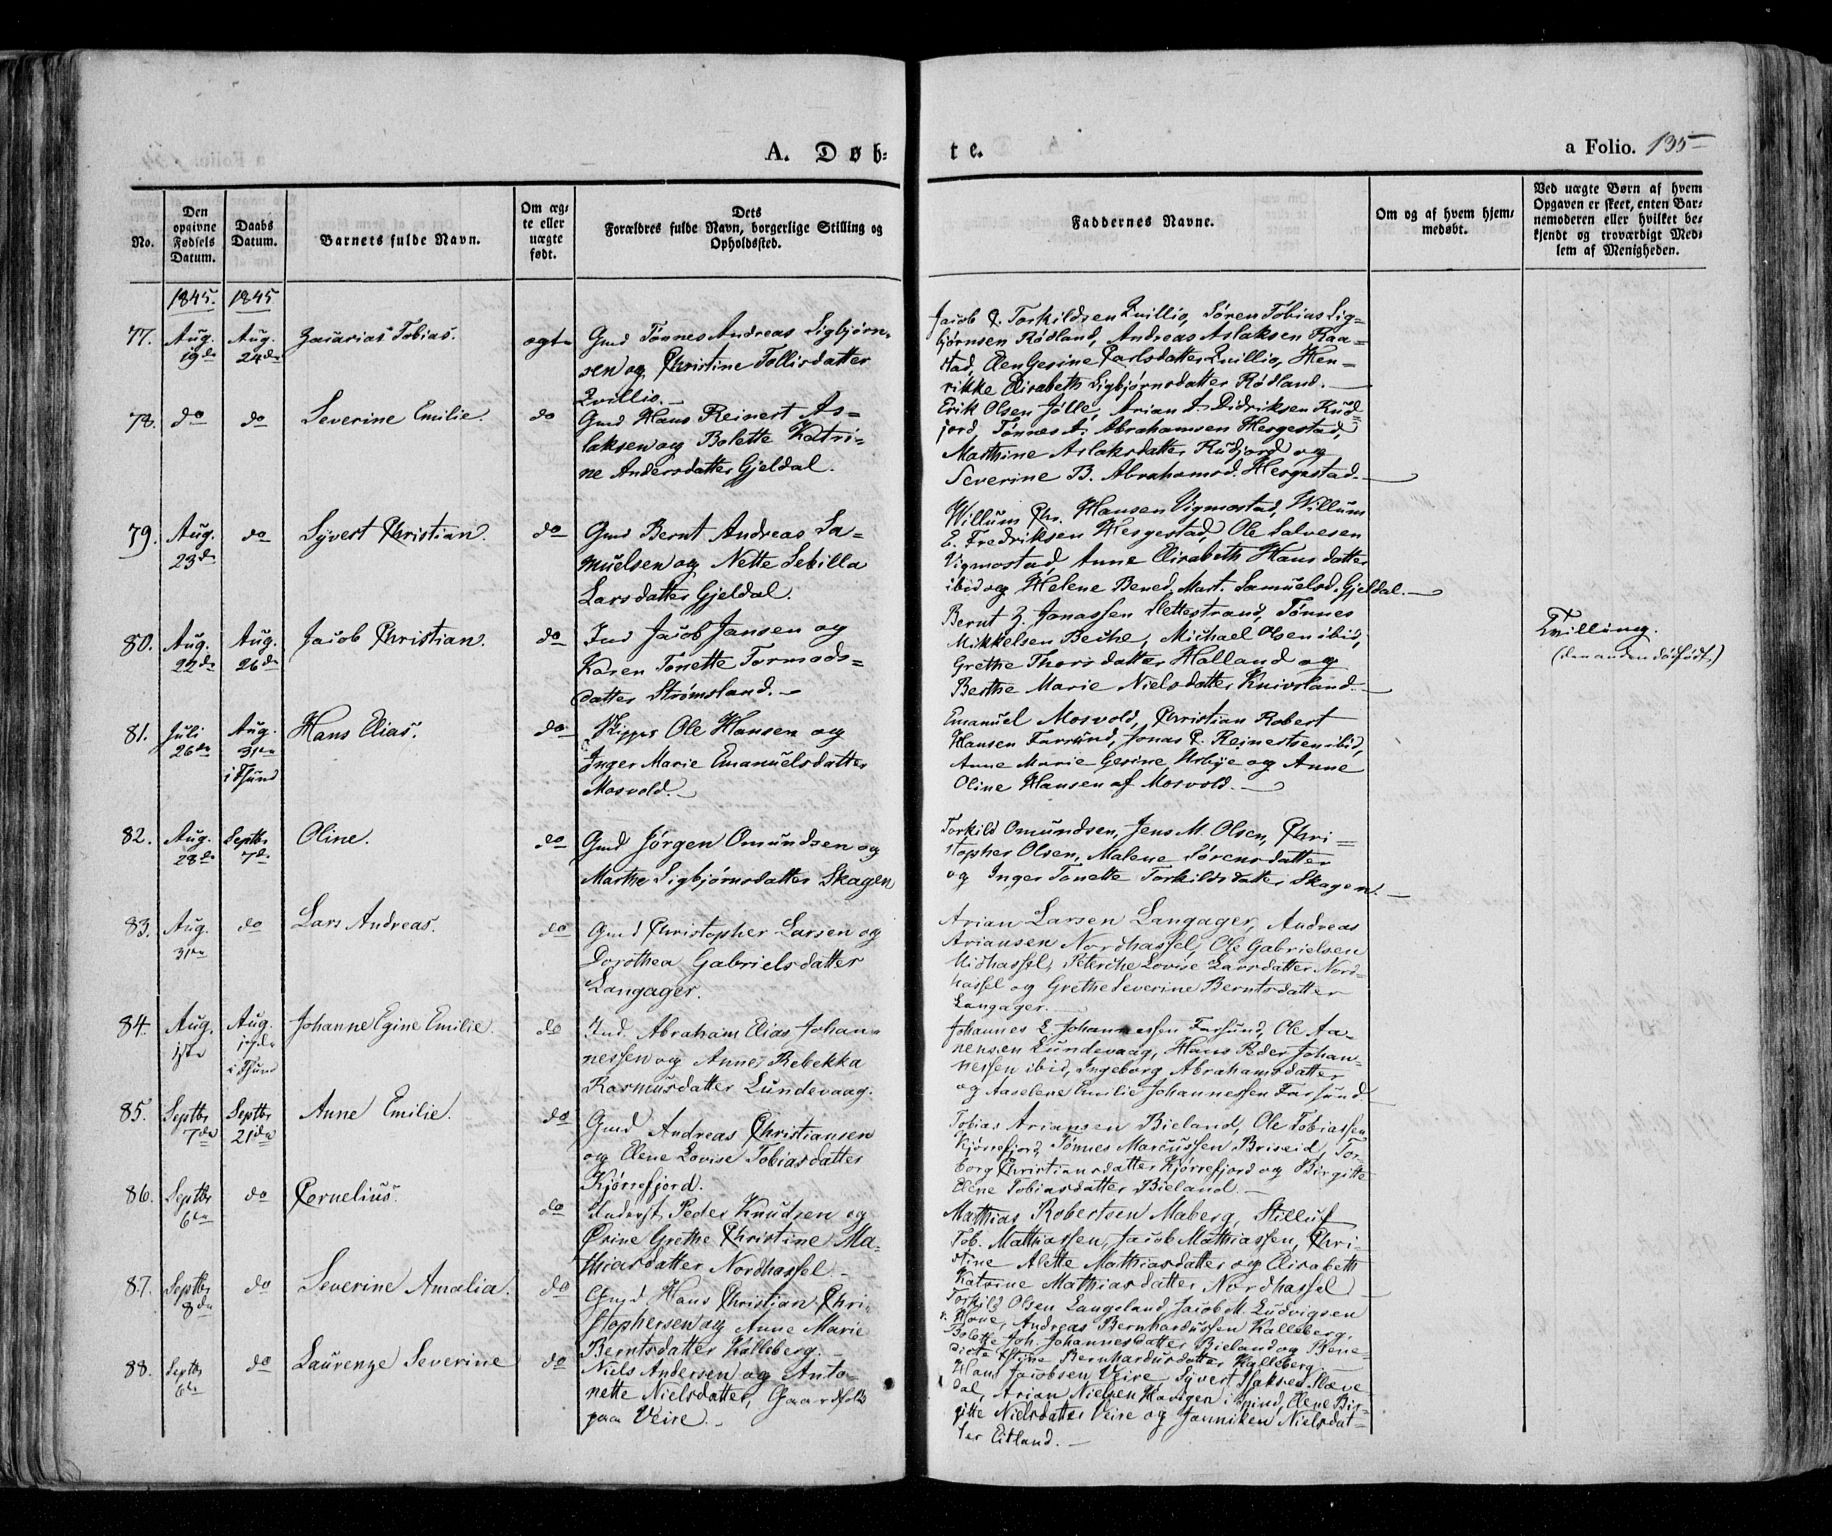 A. Døb-
te.
a Folio. 135
No.
Den opgivne Fødsels Datum.
Daabs Datum.
Barnets fulde Navn.
Om ægte eller uægte født.
Dets Forældres fulde Navn, borgerlige Stilling og Opholdssted.
Faddernes Navne.
Om og af hvem hjemmedøbt.
Ved uægte Børn af hvem Opgaven er skeet, enten Barnemoderen eller hvilket bekjendt og troværdigt Medlem af Menigheden.
1845. 1845
77. Aug. 19de Aug. 24de Zacarias Tobias. ægte
Gmd Tønnes Andreas Sigbjørn-
sen og Christine Tollisdatter
Qvillio.
Jacob C. Torkildsen Qvillio, Søren Tobias Sig-
bjørnsen Rødland, Andreas Aslaksen Raa-
stad, Elen Gesine Carlsdatter Qvillio, Hen-
rikke Elisabeth Sigbjørnsdatter Rødland.
78. do do Severine Emilie. do
Gmd Hans Reinert As-
laksen og Bolette Katri-
ne Andersdatter Gjeldal.
Erik Olsen Jølle, Arian A. Didriksen Rud-
jord, Tønnes A. Abrahamsen Hesgestad,
Marthine Aslaksdatter Rudjord og
Severine B. Abrahamsd. Hesgestad.
79. Aug. 23de do Syvert Christian. do
Gmd Bernt Andreas Sa-
muelsen og Nette Sebilla
Larsdatter Gjeldal.
Willum Chr. Hansen Vigmostad, Willum
E. Fredriksen Hesgestad, Ole Salvesen
Vigmostad, Anne Elisabeth Hansdatter
ibid og Helene Bened. Mart. Samuelsd. Gjeldal.
80. Aug. 22de Aug. 26de Jacob Christian. do
Ind Jacob Jansen og
Karen Tonette Tormods-
datter Strømsland.
Bernt Z. Jonassen Slettestrand, Tønnes
Mikkelsen Beche, Michael Olsen ibid,
Grethe Thorsdatter Holland og
Berthe Marie Nielsdatter Knivsland.
Tvilling.
(den anden dødfødt.)
81. Juli 26de Aug. 31te i Fsund Hans Elias. do
Skipper Ole Hansen og
Inger Marie Emanuelsdatter
Mosvold.
Emanuel Mosvold, Christian Robert
Hansen Farsund, Jonas C. Reinertsen ibid,
Anne Marie Gesine Urbye og Anne
Oline Hansen af Mosvold.
82. Aug. 28de Septbr 7de Oline. do
Gmd Jørgen Omundsen og
Marthe Sigbjørnsdatter Skagen
Torkild Omundsen, Jens M. Olsen, Chri-
stopher Olsen, Malene Sørensdatter
og Inger Tonette Torkildsdatter Skagen.
83. Aug. 31te do Lars Andreas. do
Gmd Christopher Larsen og
Dorothea Gabrielsdatter
Langager.
Arian Larsen Langager, Andreas
Ariansen Nordhassel, Ole Gabrielsen
Midhassel, Peterche Lovise Larsdatter Nord-
hassel og Grethe Severine Berntsdatter
Langager.
84. Aug. 1ste Aug. i Fsund Johanne Egine Emilie. do
Ind Abraham Elias Johan-
nessen og Anne Rebekka
Rasmusdatter Lundevaag.
Johannes E. Johannessen Farsund, Ole Aa-
nensen Lundevaag, Hans Peder Johan-
nessen ibid, Ingeborg Abrahamsdatter
og Aaselene Emilie Johannessen Farsund
85. Septbr 7de Septbr 21de Anne Emilie. do
Gmd Andreas Christiansen
og Elene Lovise Tobiasdatter
Kjørrefjord.
Tobias Ariansen Bieland, Ole Tobiassen
Kjørrefjord, Tønnes Marcussen Briseid, Tor-
borg Christiansdatter Kjørrefjord og Birgitte
Elene Tobiasdatter Bieland.
86. Septbr 6te do Cornelius. do
Inderst Peder Knudsen og
Ørine Grethe Christine Ma-
thiasdatter Nordhassel
Mathias Robertsen Maberg, Stilluf
Tob. Mathiassen, Jacob Mathiassen, Chri-
stine Alette Mathiasdatter og Elisabeth
Katrine Mathiasdatter Nordhassel
87. Septbr 8de do Severine Amalia. do
Gmd Hans Christian Chri-
stophersen og Anne Marie
Berntsdatter Kalleberg.
Torkild Olsen Langeland, Jacob M. Ludvigsen
v. Hove, Andreas Bernhardussen Kalleberg,
Bolette Joh. Johannesdatter Bieland og Bene-
dicte Stine Bernhardusdatter Kalleberg
88. Septbr 6te do Laurenze Severine do
Niels Andersen og Anto-
nette Nielsdatter, Gaardfolk
paa Veire.
Hans Jacobsen Veire, Syvert Isaksen Slæve-
dal, Arian Nielsen Haugen i Spind, Elene Bir-
gitte Nielsdatter Veire og Janniken Nielsdat-
ter Eitland.